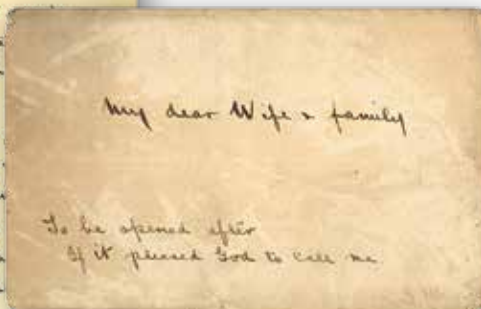 My dear Wife & family
To be opened after
If it pleased God to call me